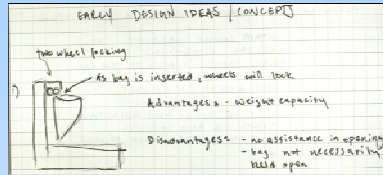 EARLY DESIGN IDEAS / CONCEPTS
two wheel locking
As bag is inserted, wheels will lock
1)
Advantages: - weight capacity
Disadvantages: - no assistance in opening
- bag not necessarily
held open